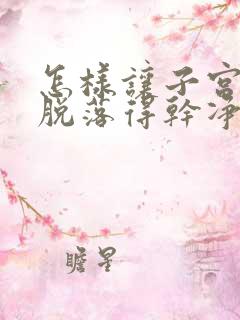 怎樣讓子宮
脫落得幹淨
瞻星